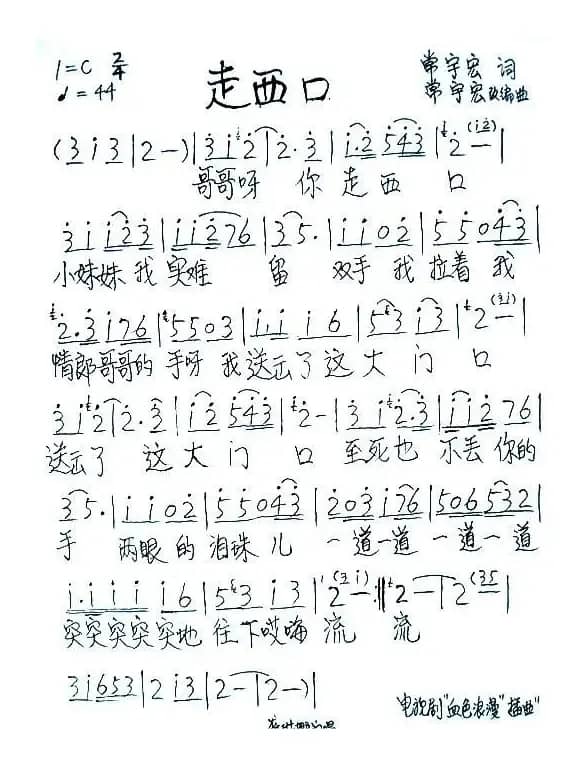 1=C 2/4
♩=44
走西口
常宇宏 词
常宇宏 改编曲
(3 i 3 | 2 - ) | 3 i 2 | 2. 3 | i. 2 5 4 3 | 2 - (i 2) |
哥哥呀 你 走 西 口
3 i i 2 3 | i i 2 7 6 | 3 5. | i i 0 2 | 5 5 0 4 3 |
小妹妹 我 实难 留 双手 我 拉着 我
2. 3 i 7 6 | 5 5 0 3 | i. i i 6 | 5 3 i 3 | 2 - (3 i) |
情郎哥哥的 手呀 我 送去了 这 大 门 口
3 i 2 | 2. 3 | i 2 5 4 3 | 2 - | 3 i 2. 3 | i i 2 7 6 |
送去了 这 大 门 口 至死也 不丢 你的
3 5. | i i 0 2 | 5 5 0 4 3 | 2 0 3 i 7 6 | 5 0 6 5 3 2 |
手 两眼 的 泪珠 儿 一道一道 一道一道
i. i i i i 6 | 5 3 i 3 | 2 - (3 i) :|| 2 - | 2 (3 5
突突突突突地 往下哎嗨 流 流
3 i 6 5 3 | 2 i 3 | 2 - | 2 - ) |
电视剧"血色浪漫"插曲"